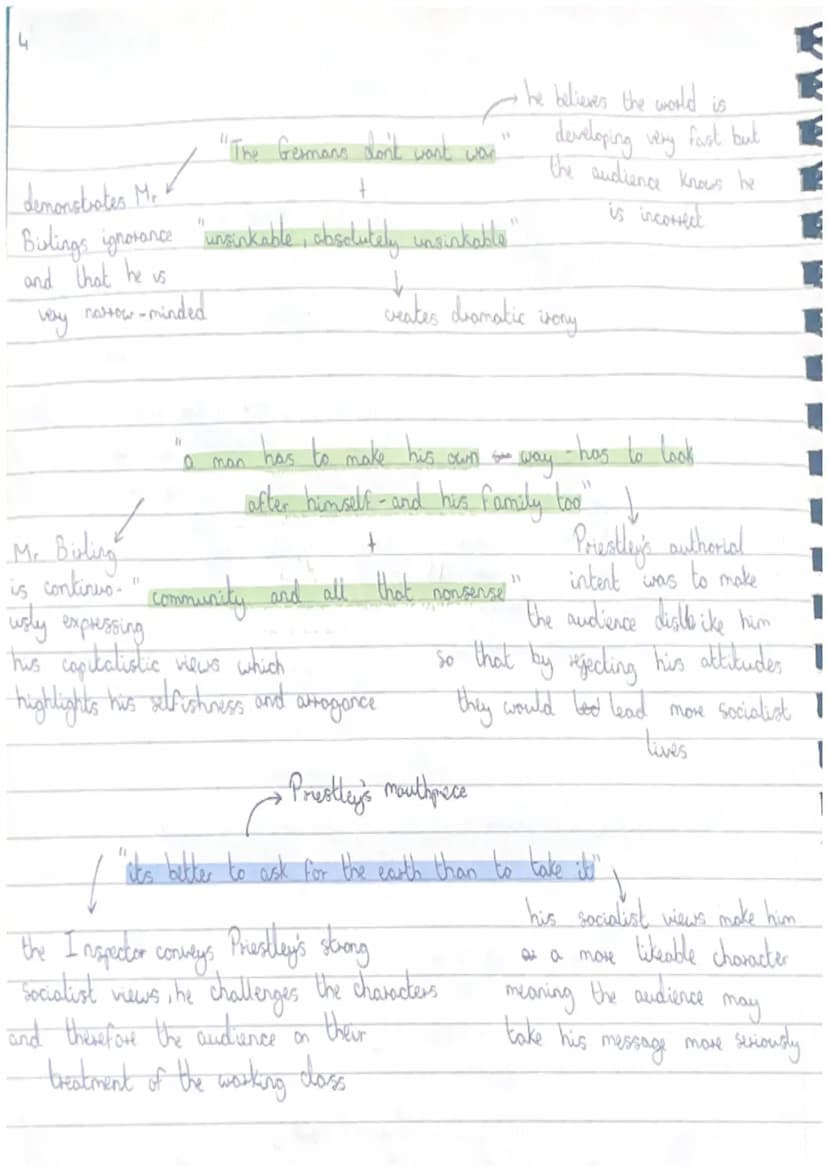 4
he believes the world is
developing very fast but
the audience knows he
is incorrect
"The Germans don't want war"
+
"unsinkable, absolutely unsinkable"
demonstrates Mr
Birlings ignorance
and that he is
very narrow-minded
creates dramatic irony
"a man has to make his own way - has to look
after himself - and his family too"
+
"community and all that nonsense"
Mr Birling
is continuo-
usly expressing
his capitalistic views which
highlights his selfishness and arrogance
Priestley's authorial
intent was to make
the audience dislike him
so that by rejecting his attitudes
they would lead more socialist
lives
Priestley's mouthpiece
"its better to ask for the earth than to take it"
the Inspector conveys Priestley's strong
socialist views, he challenges the characters
and therefore the audience on their
treatment of the working class
his socialist views make him
a more likeable character
meaning the audience may
take his message more seriously